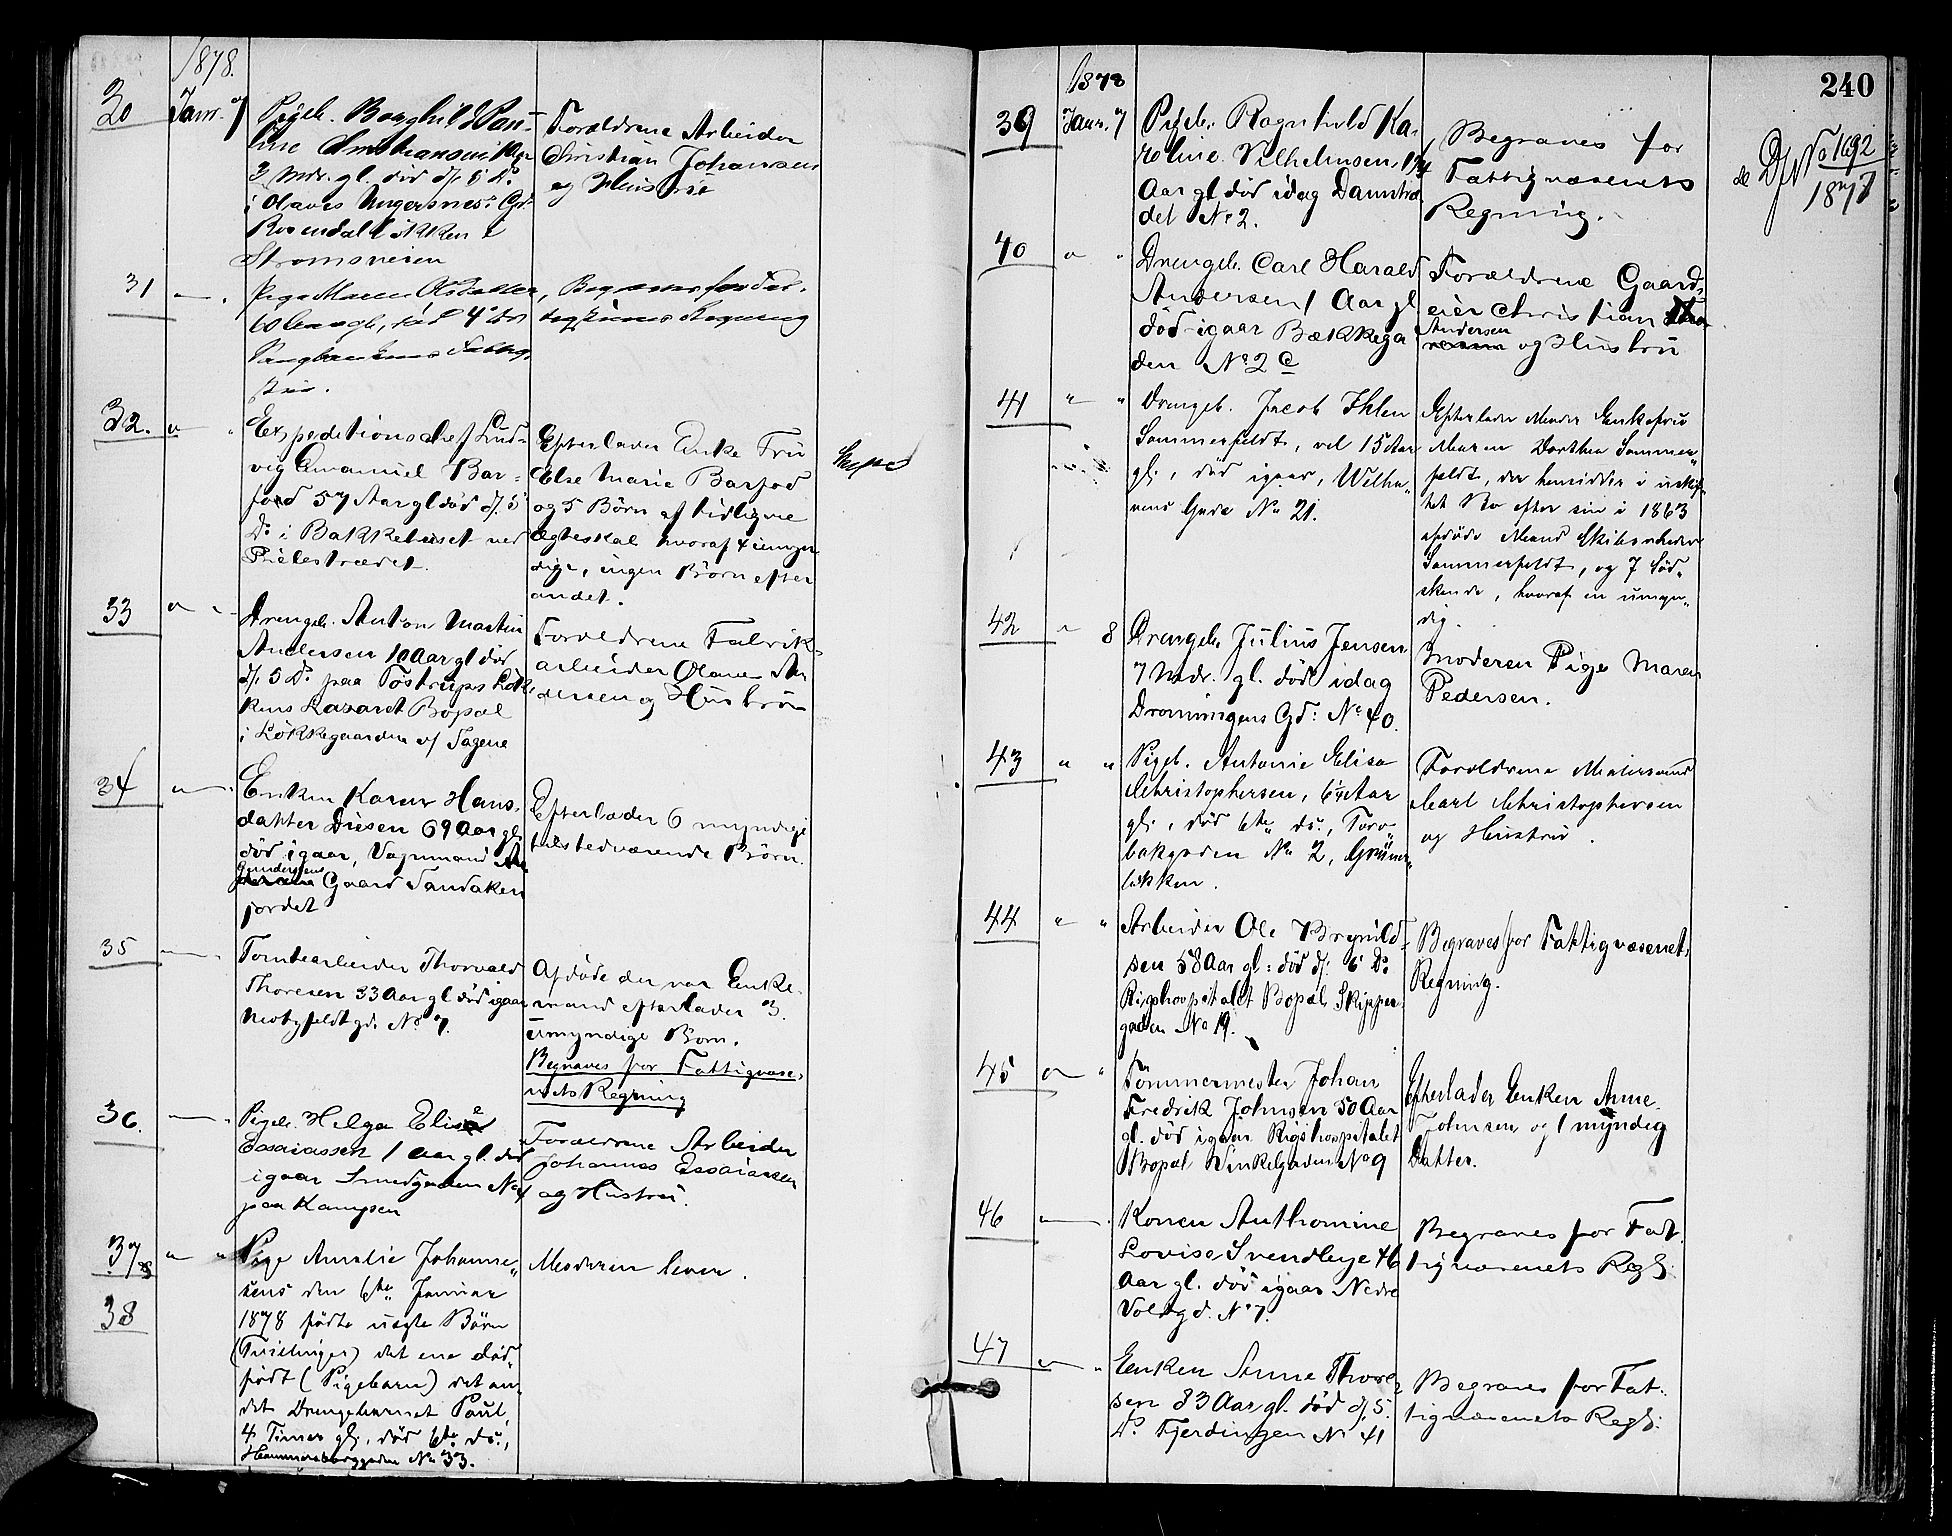 1878.
30 Janr. 7 Pigeb. Borghild Pau-
line Christiansen
3 Mdr. gl. død d/. 5 Ds
i Olaves Ungersnes's Gd.
Rosendalløkken
Strømsveien
Forældrene Arbeider
Christian Johansen
og Hustru
31 Pige Maren
gl, død 4 Ds
Begraves for Fat-
tigvæsenets Regning
32. Expeditionschef Lud-
vig Emanuel Bar-
fod 57 Aar gl død d/. 5
Ds i Bakkehuset ved
Pilestrædet.
Efterlader Enke Fru
Else Marie Barfod
og 5 Børn af tidligere
Ægteskab hvoraf 4 umyn-
dige, ingen Børn efter
andet.
33 Drengeb. Anton Martin
Andersen 10 Aar gl død
d/. 5 Ds paa Tostrups Løk-
kens Lazaret Bopæl
i Løkkegaarden v/ Sagene
Forældrene Fabrik-
arbeider Olaus An-
dersen og Hustru
34 Enken Karen Hans-
datter Diesen 69 Aar gl
død igaar, Vognmand
Gundersens Gaard Sandaker
jordet
Efterlader 6 myndige
tilstedværende Børn.
35 Tomtearbeider Thorvald
Thoresen 33 Aar gl død igaar
Motzfeldtgd. No 7.
Afdøde der var Enke-
mand efterlader 3
umyndige Børn.
Begraves for Fattigvæse-
nets Regning
36. Pigeb. Helga Elise
Essaiassen 1 Aar gl. død
igaar Smedgaden No 4
paa Kampen
Forældrene Arbeider
Johannes Essaiassen
og Hustru.
37 Pige Amalie Johanne-
sens den 6te Januar
38 1878 fødte uægte Børn
(Tvillinger) det ene død-
født (Pigebarn) det an-
det Drengebarnet Paul,
4 Timer gl., død 6te ds.,
Hammersborggaden No 33.
Moderen lever.
240
1878
39 Janr. 7 Pigeb. Ragnhild Ka-
roline Vilhelmsen, 1 3/4
Aar gl død idag Damstræ
det No 2.
Begraves for
Fattigvæsenets
Regning.
No 1692
1877
40 Drengeb. Carl Harald
Andersen 1 Aar gl
død igaar Bækkega
den No 2 c
Forældrene Gaard-
eier Christian
Andersen og Hustru
41 Drengeb. Jacob Ihlen
Sommerfeldt, vel 15 Aar
gl., død igaar, Wilhe-
No 21.
Efterlader Moder Enkefru
Maren Dorthea Sommer-
feldt, der hensidder i uskif-
tet Bo efter sin i 1863
afdøde Mand Skibsrheder
Sommerfeldt, og 7 Sød-
skende, hvoraf en umyn-
dig.
42 8 Drengeb. Julius Jensen
7 Mdr. gl. død idag
Dronningens Gd: No 40.
Moderen Pige Maren
Pedersen.
43 Pigeb. Antonie Elise
Christophersen, 6 1/4 Aar
gl., død 6te ds.,
bakgaden No 2, Grüner-
løkken.
Forældrene Malersvend
Carl Christophersen
og Hustru.
44 Arbeider Ole Brynild-
sen 58 Aar gl: død d/: 6 Ds
Rigshospitalet Bopæl Skipper-
gaden No 19.
Begraves for Fattigvæsenets
Regning.
45 Tømmermester Johan
Fredrik Johnsen 50 Aar
gl. død igaar Rigshospitalet
Bopæl Vinkelgaden No 9
Efterlader Enken Anne
Johnsen og 1 myndig
Datter.
46 Konen Anthomine
Lovise Svendbye 46
Aar gl. død igaar Nedre
Voldgd. No 7.
Begraves for Fat-
tigvæsenets Regg:
47 Enken Anne Thore-
sen 83 Aar gl. død d/. 5.
Ds Fjerdingen No 41
Begraves for Fat-
tigvæsenets Regg: